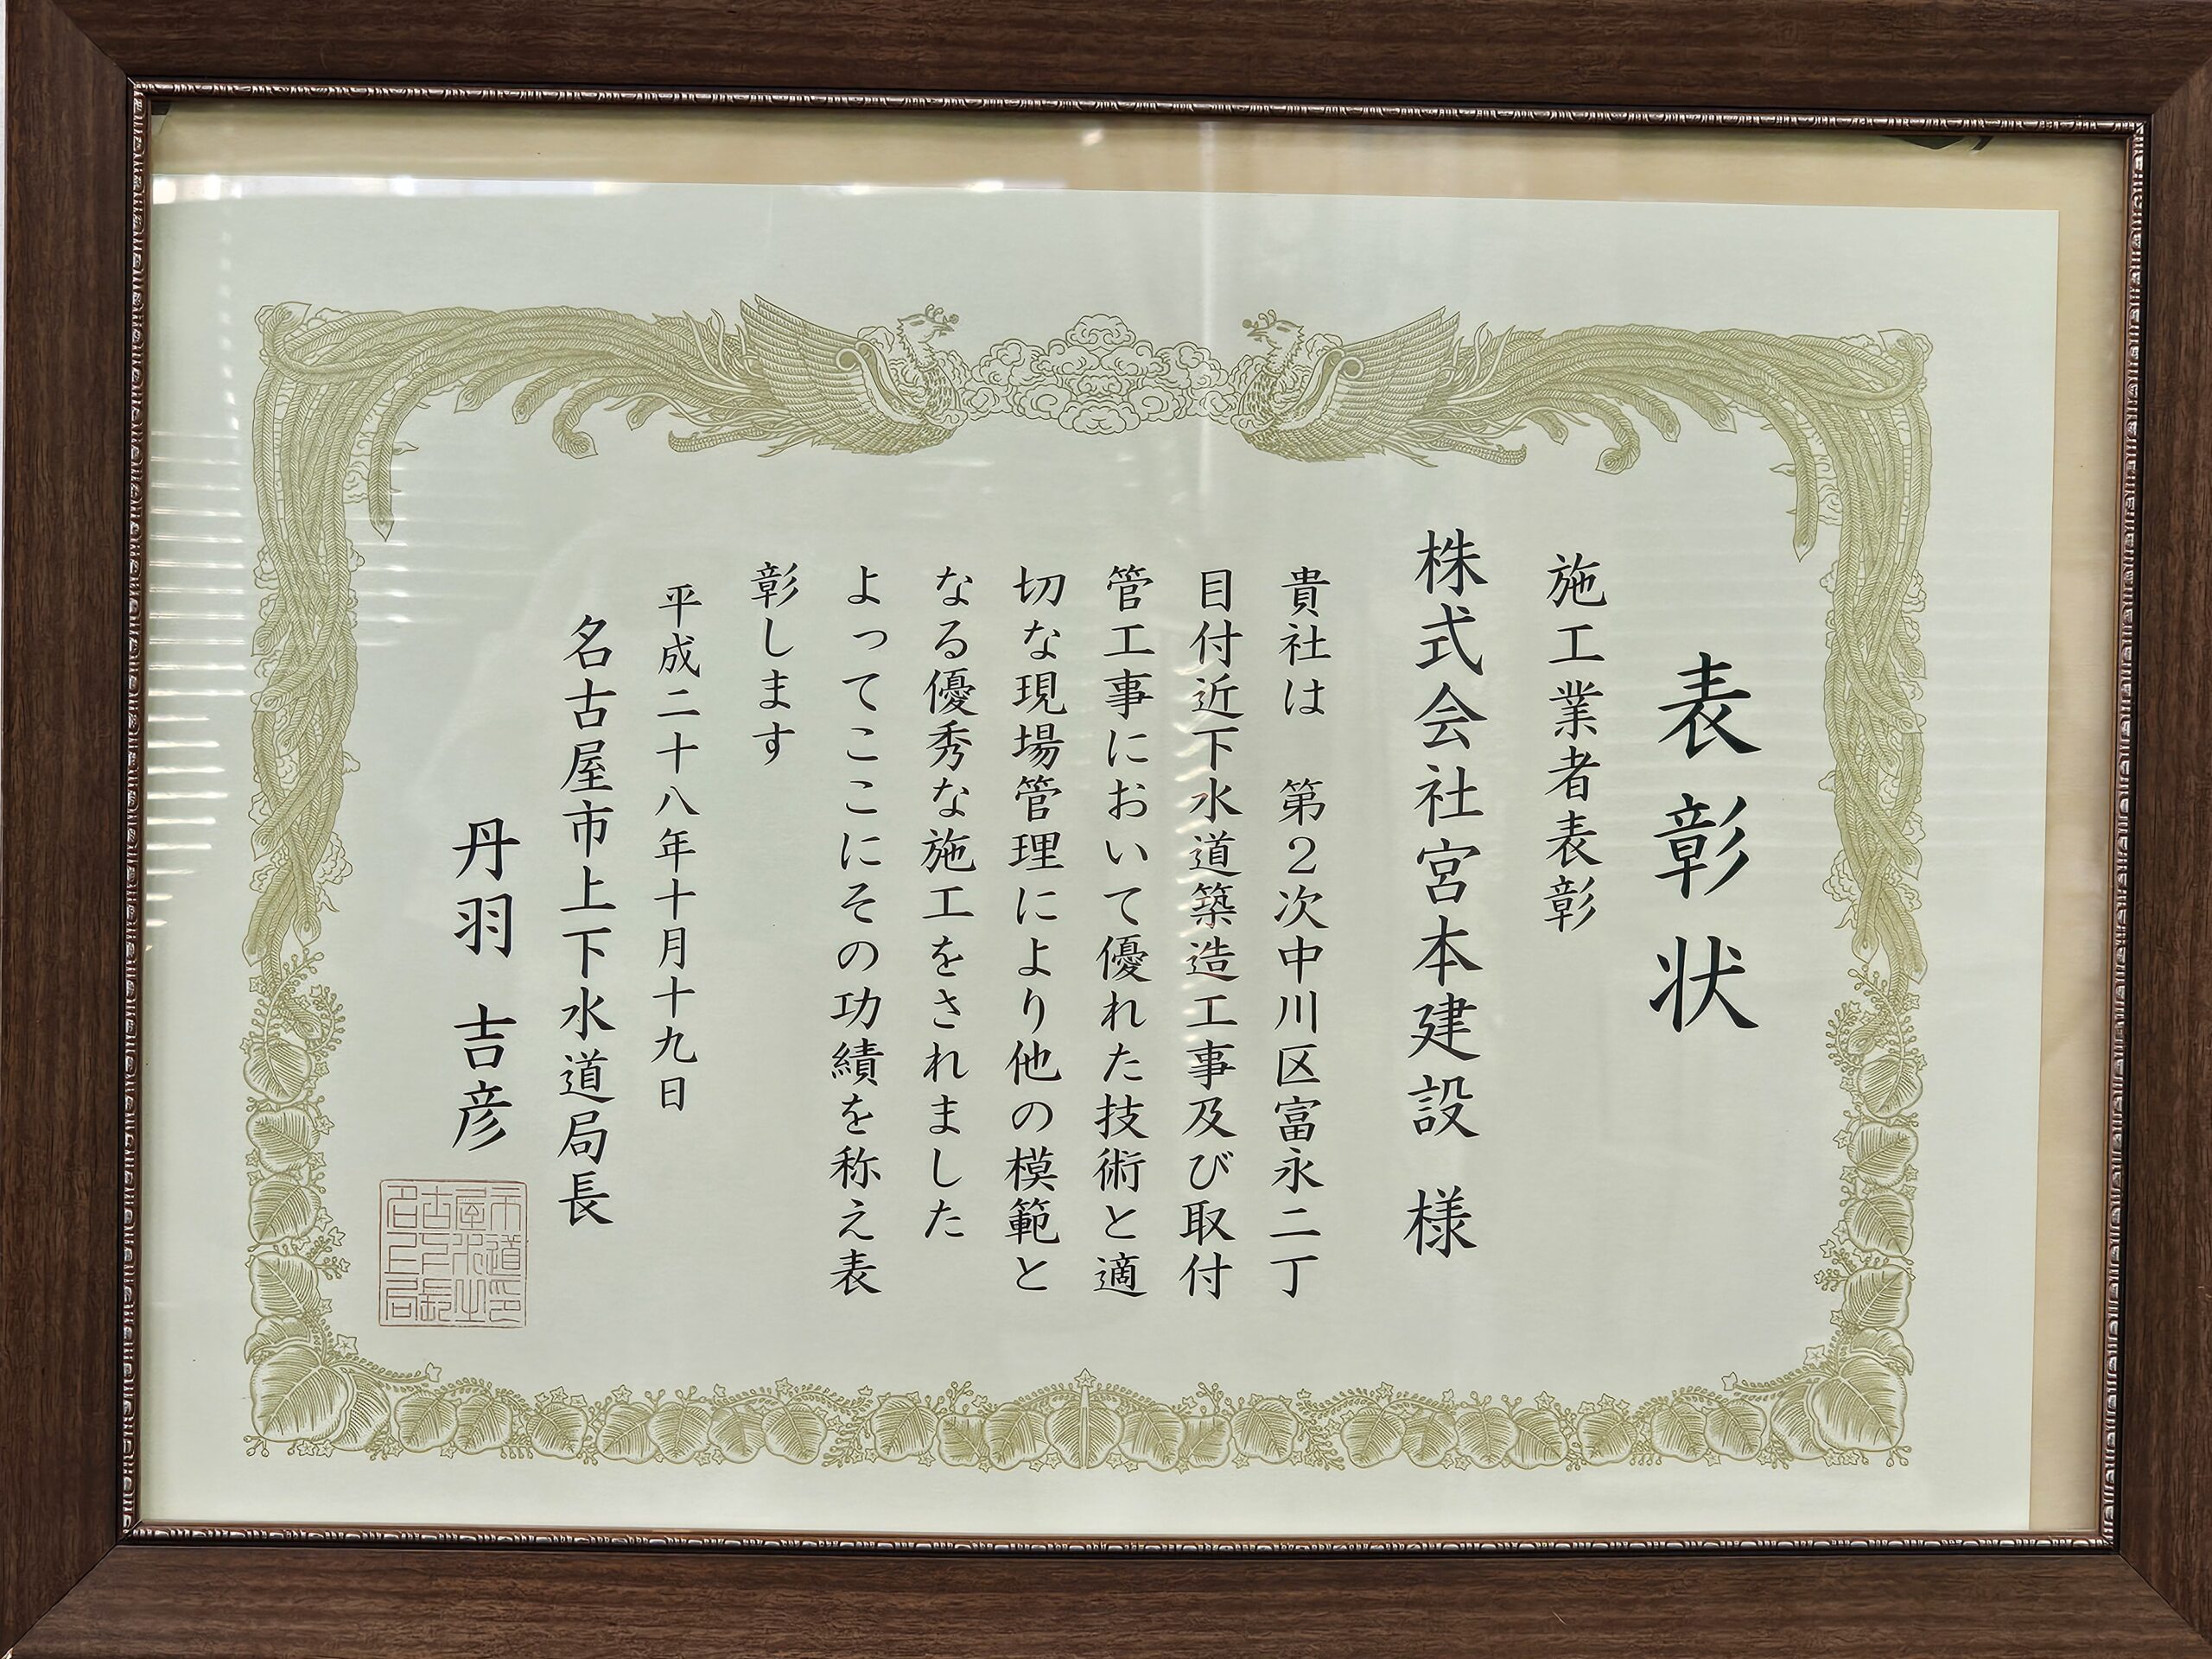 表彰状
施工業者表彰
株式会社宮本建設 様
貴社は 第2次中川区富永二丁
目付近下水道築造工事及び取付
管工事において優れた技術と適
切な現場管理により他の模範と
なる優秀な施工をされました
よってここにその功績を称え表
彰します
平成二十八年十月十九日
名古屋市上下水道局長
丹羽 吉彦